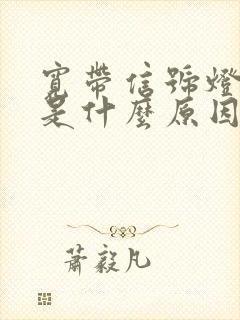 寬帶信號燈
是什麼原因
蕭毅凡